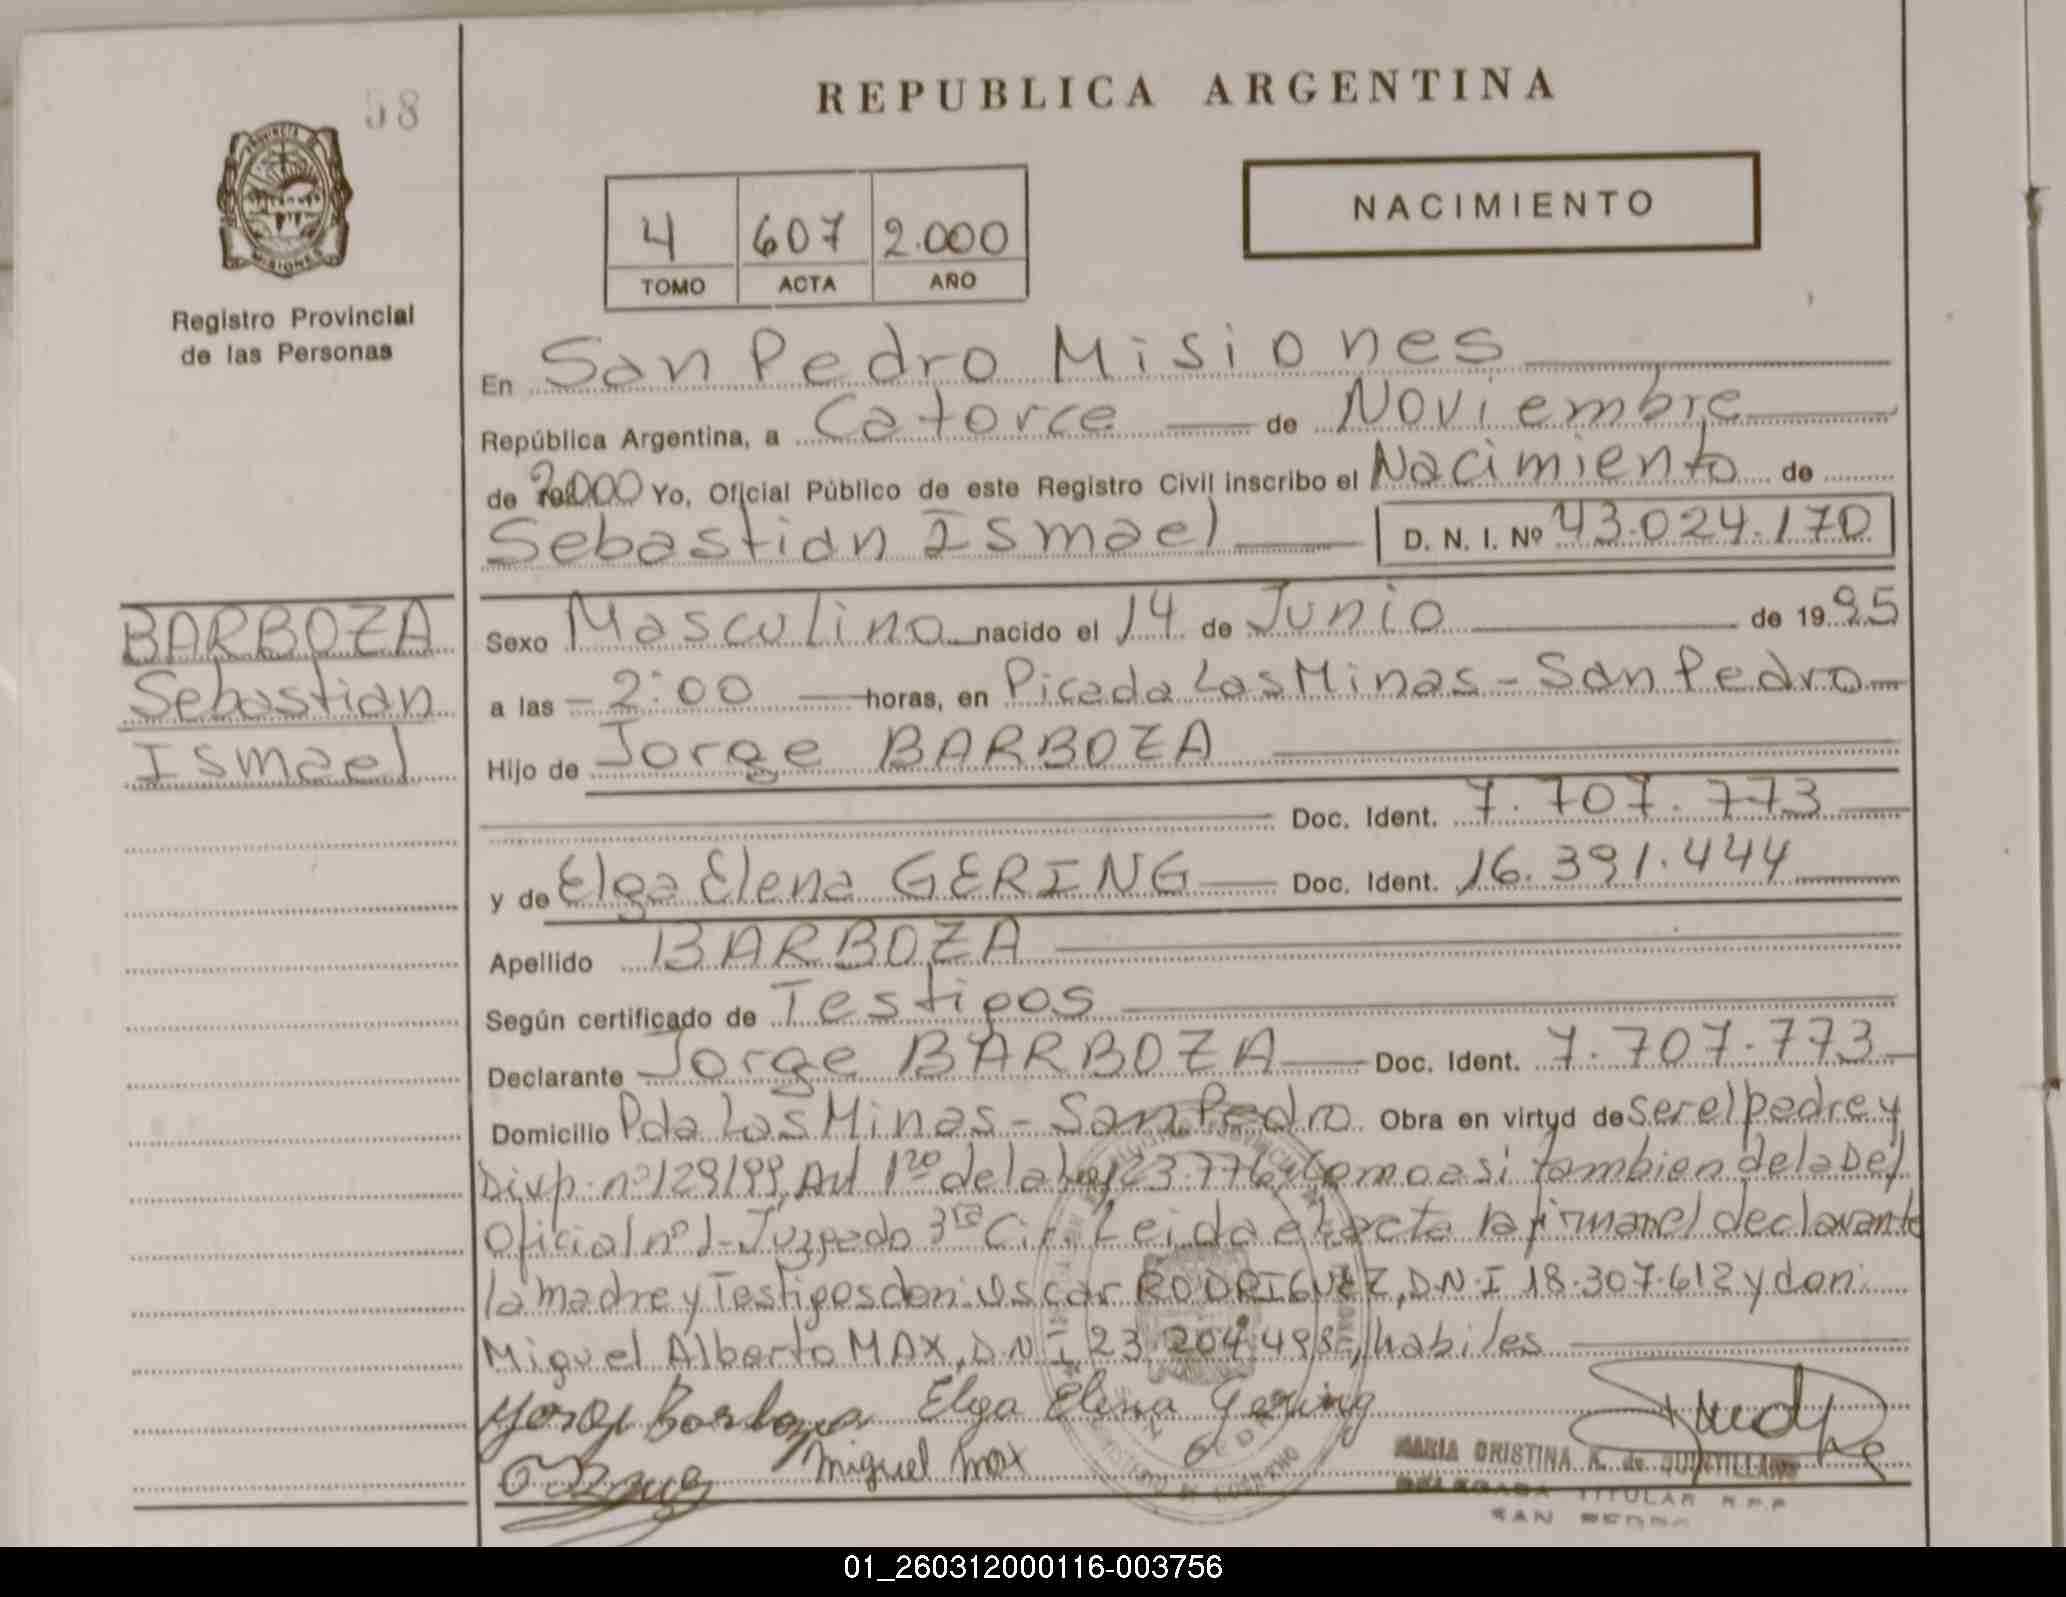 58
REPUBLICA ARGENTINA
PROVINCIA DE MISIONES
Registro Provincial
de las Personas
4 607 2.000
TOMO ACTA AÑO
NACIMIENTO
En San Pedro Misiones
República Argentina, a Catorce de Noviembre
de 2.000 Yo, Oficial Público de este Registro Civil inscribo el Nacimiento de
Sebastian Ismael D. N. I. Nº 43.024.170
BARBOZA
Sebastian
Ismael
Sexo Masculino nacido el 14 de Junio de 1995
a las 2:00 horas, en Picada Las Minas - San Pedro
Hijo de Jorge BARBOZA
Doc. Ident. 7.707.773
y de Elga Elena GERING Doc. Ident. 16.391.444
Apellido BARBOZA
Según certificado de Testigos
Declarante Jorge BARBOZA Doc. Ident. 7.707.773
Domicilio Pda Las Minas - San Pedro Obra en virtud de ser el padre y
Disp. nº 129/99, Art 1ro de la ley 23.776 como asi tambien de la Def.
Oficial nº 1 - Juzgado 3ra Cir. Leida el acta la firman el declarante
la madre y Testigos don: Oscar RODRIGUEZ, D.N.I 18.307.612 y don:
Miguel Alberto MAX, D.N.I 23.204.498, habiles
Jorge Barboza Elga Elena Gering
Miguel Max
MARIA CRISTINA K. de QUINTILLANS
DELEGADA TITULAR R.P.P
SAN PEDRO
01_260312000116-003756